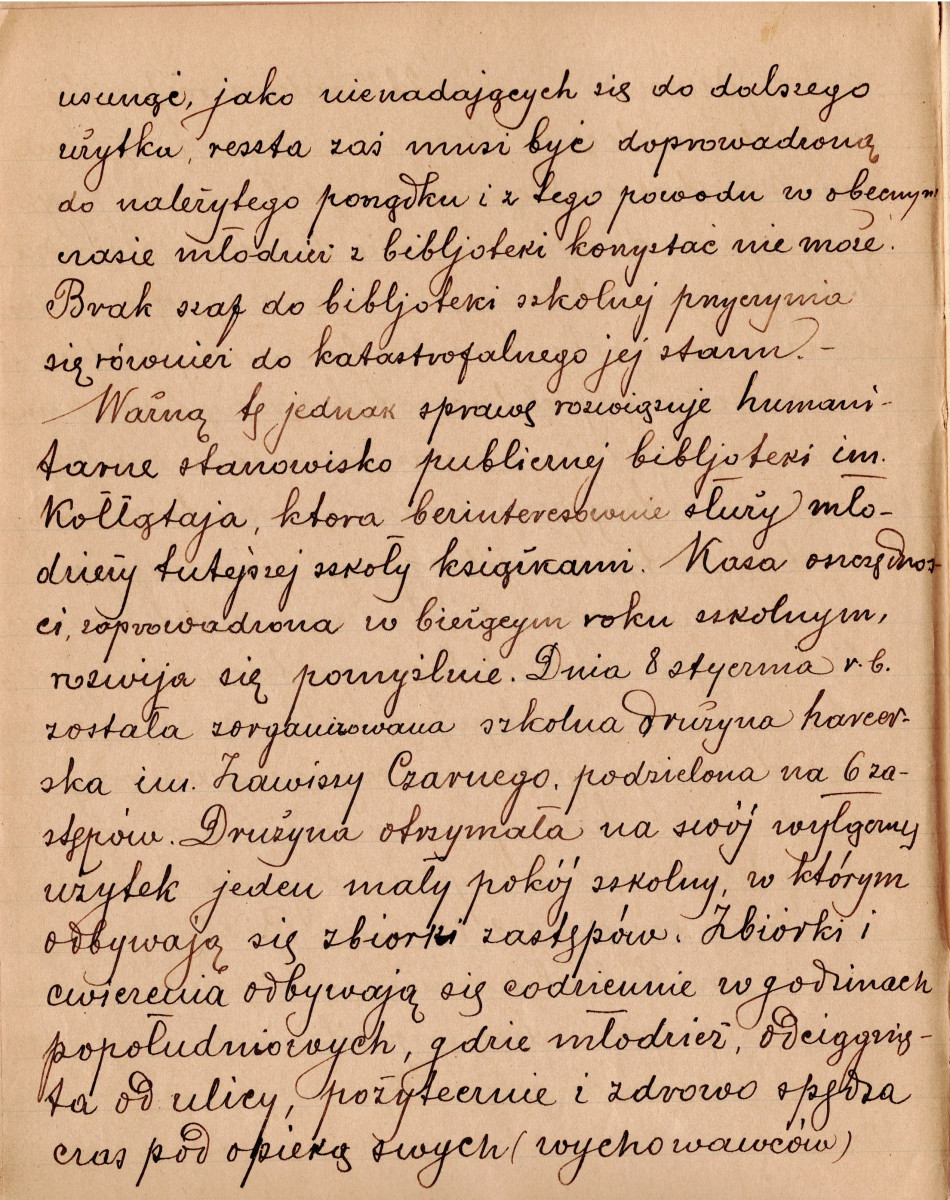 usunąć, jako nienadających się do dalszego
użytku, reszta zaś musi być doprowadzoną
do należytego porządku i z tego powodu w obecnym
czasie młodzież z bibljoteki korzystać nie może.
Brak szaf do bibljoteki szkolnej przyczynia
się również do katastrofalnego jej stanu. –
Ważną tę jednak sprawę rozwiązuje humani-
tarne stanowisko publicznej bibljoteki im.
Kołłątaja, ktora bezinteresownie służy mło-
dzieży tutejszej szkoły książkami. Kasa oszczędnoś-
ci, zaprowadzona w bieżącym roku szkolnym,
rozwija się pomyślnie. Dnia 8 stycznia r. b.
została zorganizowana szkolna drużyna harcer-
ska im. Zawiszy Czarnego, podzielona na 6 za-
stępów. Drużyna otrzymała na swój wyłączny
użytek jeden mały pokój szkolny, w którym
odbywają się zbiorki zastępów. Zbiorki i
cwiczenia odbywają się codziennie w godzinach
popołudniowych, gdzie młodzież, odciągnię-
ta od ulicy, pożytecznie i zdrowo spędza
czas pod opieką swych (wychowawców)